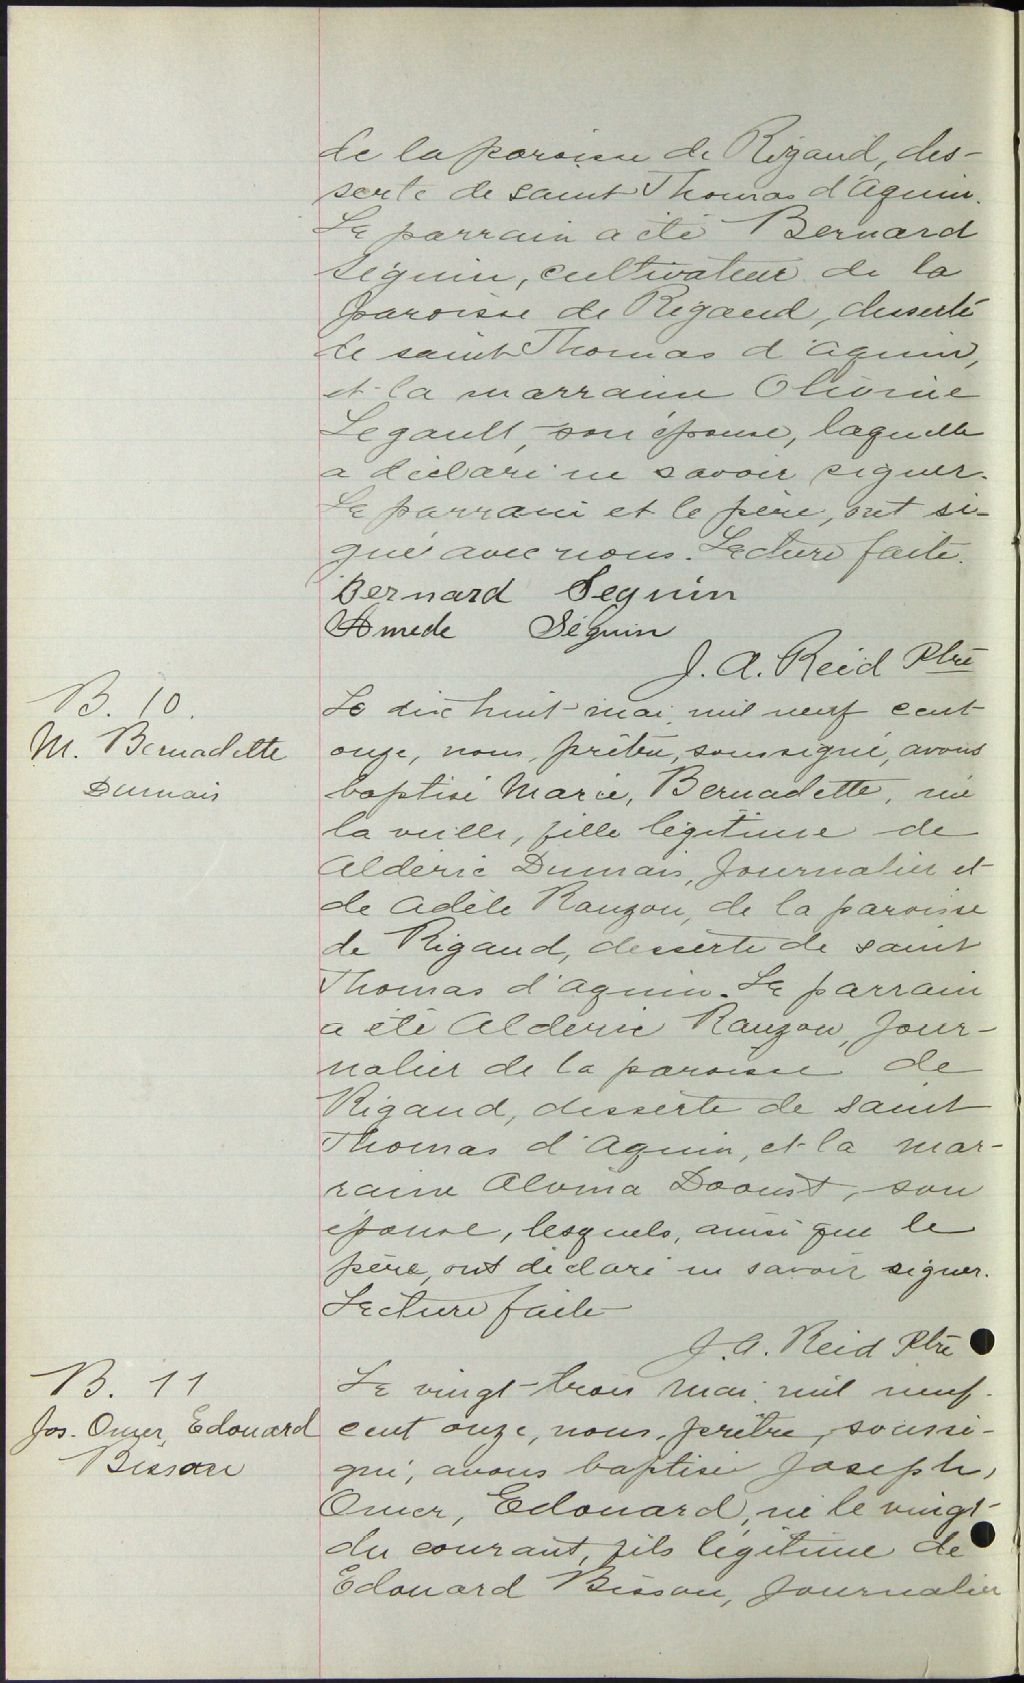 de la paroisse de Rigaud, des-
serte de saint Thomas d'Aquin.
Le parrain a été Bernard
Séguin, cultivateur de la
paroisse de Rigaud, desserte
de saint Thomas d'Aquin,
et la marraine Olivine
Legault, son épouse, laquelle
a déclaré ne savoir signer.
Le parrain et le père, ont si-
gné avec nous. Lecture faite.
Bernard Seguin
Amede Séguin
J. A. Reid Ptre
B. 10.
M. Bernadette
Dumais
Le dix huit mai mil neuf cent
onze, nous, prêtre, soussigné, avons
baptisé Marie, Bernadette, née
la veille, fille légitime de
Aldéric Dumais, journalier et
de Adèle Rauzon, de la paroisse
de Rigaud, desserte de saint
Thomas d'Aquin. Le parrain
a été Alderic Rauzon, jour-
nalier de la paroisse de
Rigaud, desserte de saint
Thomas d'Aquin, et la mar-
raine Alvina Daoust, son
épouse, lesquels, ainsi que le
père, ont déclaré ne savoir signer.
Lecture faite
J. A. Reid Ptre
B. 11
Jos. Omer, Edouard
Bisson
Le vingt-trois mai mil neuf-
cent onze, nous, prêtre, soussi-
gné, avons baptisé Joseph,
Omer, Edouard, né le vingt-
du courant, fils légitime de
Edouard Bisson, journalier